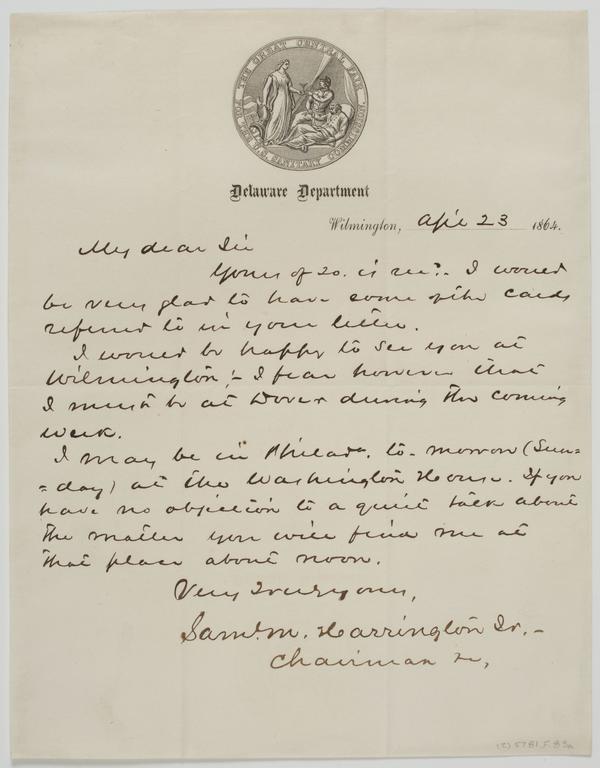 THE GREAT CENTRAL FAIR
FOR THE U.S. SANITARY COMMISSION.
Delaware Department
Wilmington, Apl 23 1864.
My dear Sir
Yours of 20. is recd.- I would
be very glad to have some of the cards
referred to in your letter.
I would be happy to see you at
Wilmington;- I fear however that
I must be at Dover during the coming
week.
I may be in Philada. to-morrow (Sun=
=day) at the Washington House. If you
have no objection to a quiet talk about
the matter you will find me at
that place about noon.
Very truly yours,
Saml. M. Harrington Jr.-
Chairman &c,
(2) 5781.F.